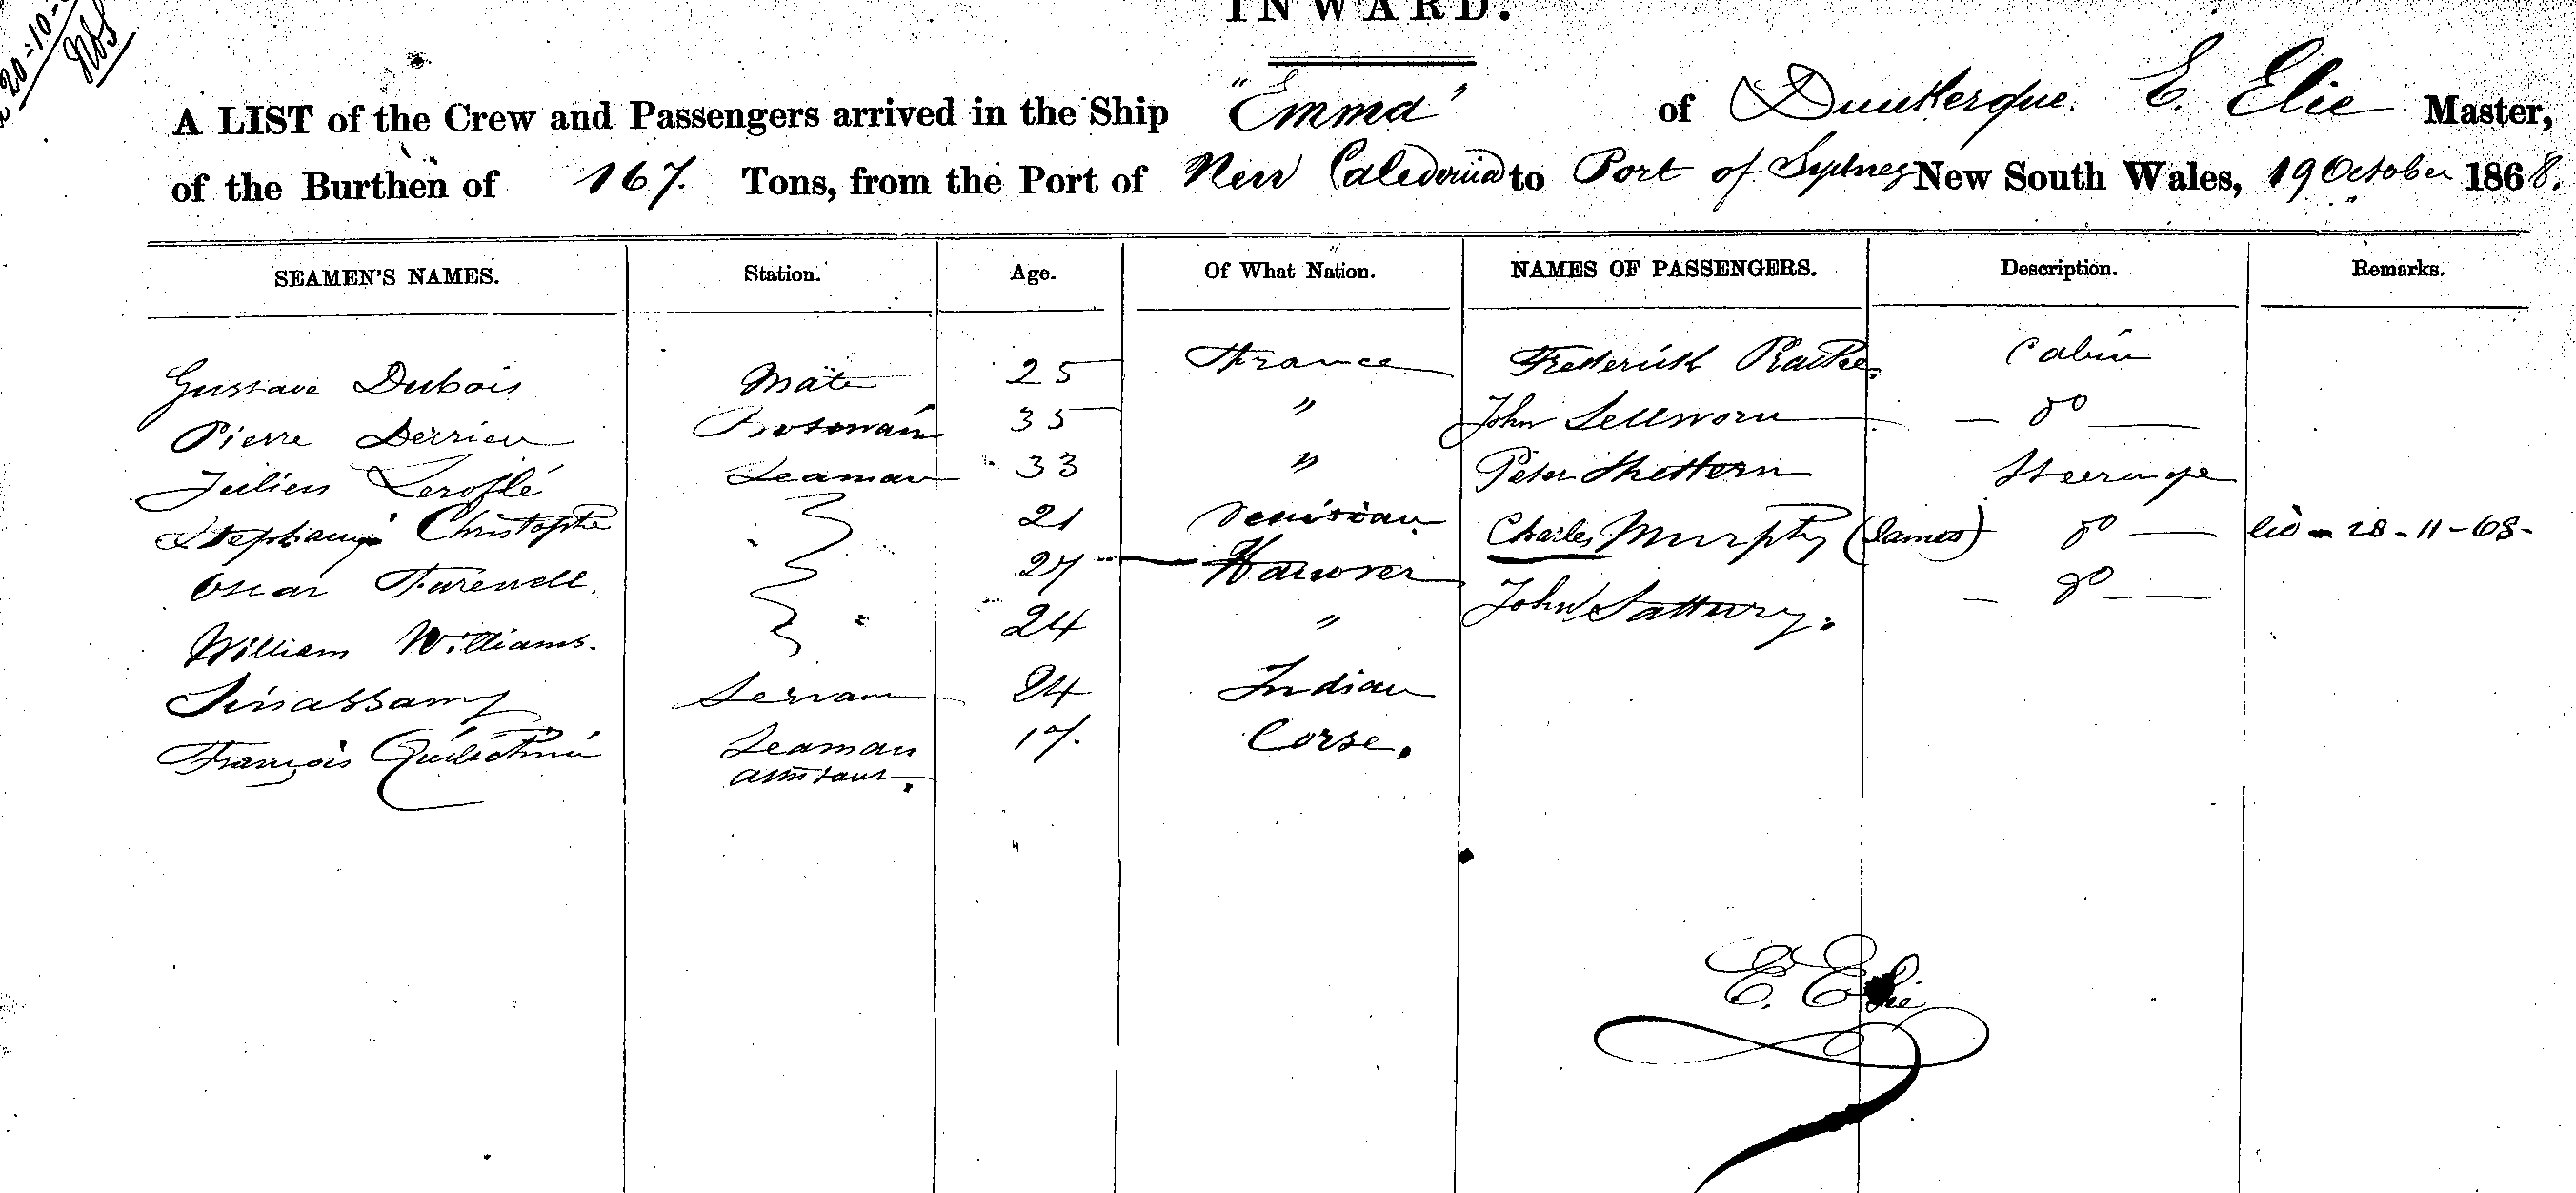 20-10-
INWARD.
A LIST of the Crew and Passengers arrived in the Ship "Emma" of Dunkerque. E. Elie Master,
of the Burthen of 167. Tons, from the Port of New Caledonia to Port of Sydney New South Wales, 19 October 1868.
SEAMEN'S NAMES. Station. Age. Of What Nation. NAMES OF PASSENGERS. Description. Remarks.
Gustave Dubois Mate 25 France Frederick Cabin
Pierre Derrien Bosswain 35 " John do
Julien Seaman 33 " Peter Steerage
Christophe 21 Charles Murphy (James) do 28-11-68-
Oscar Farewell. 27 Hanover John do
William Williams. 24 "
Sinassamy Servant 24 Indian
François Seaman 17. Corse.
assistant.
E. Elie